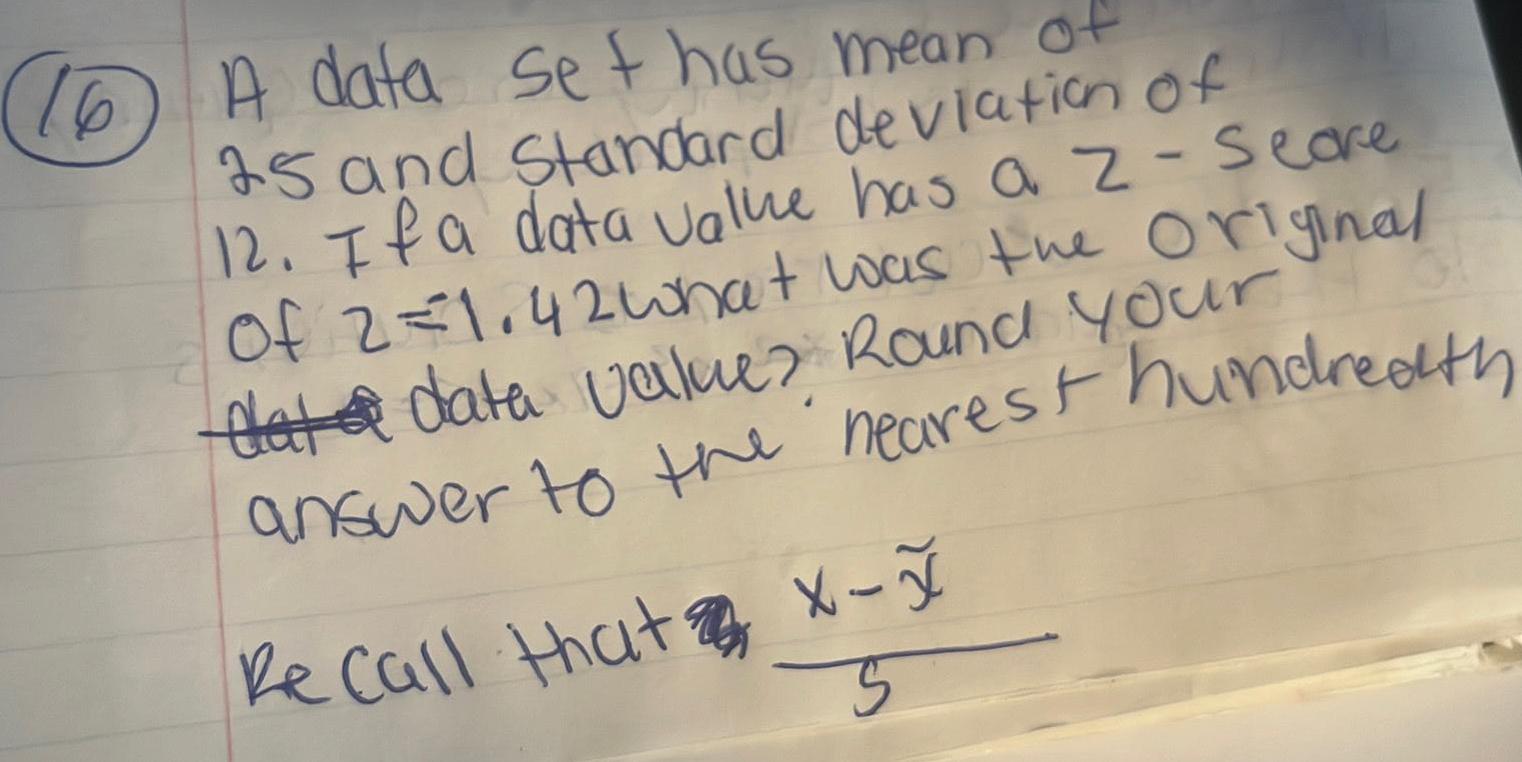 16 A data set has mean of
25 and standard deviation of
12. If a data value has a z-score
of z=1.42 what was the original
data value? Round your
answer to the nearest hundredth
Recall that x - x̃
s